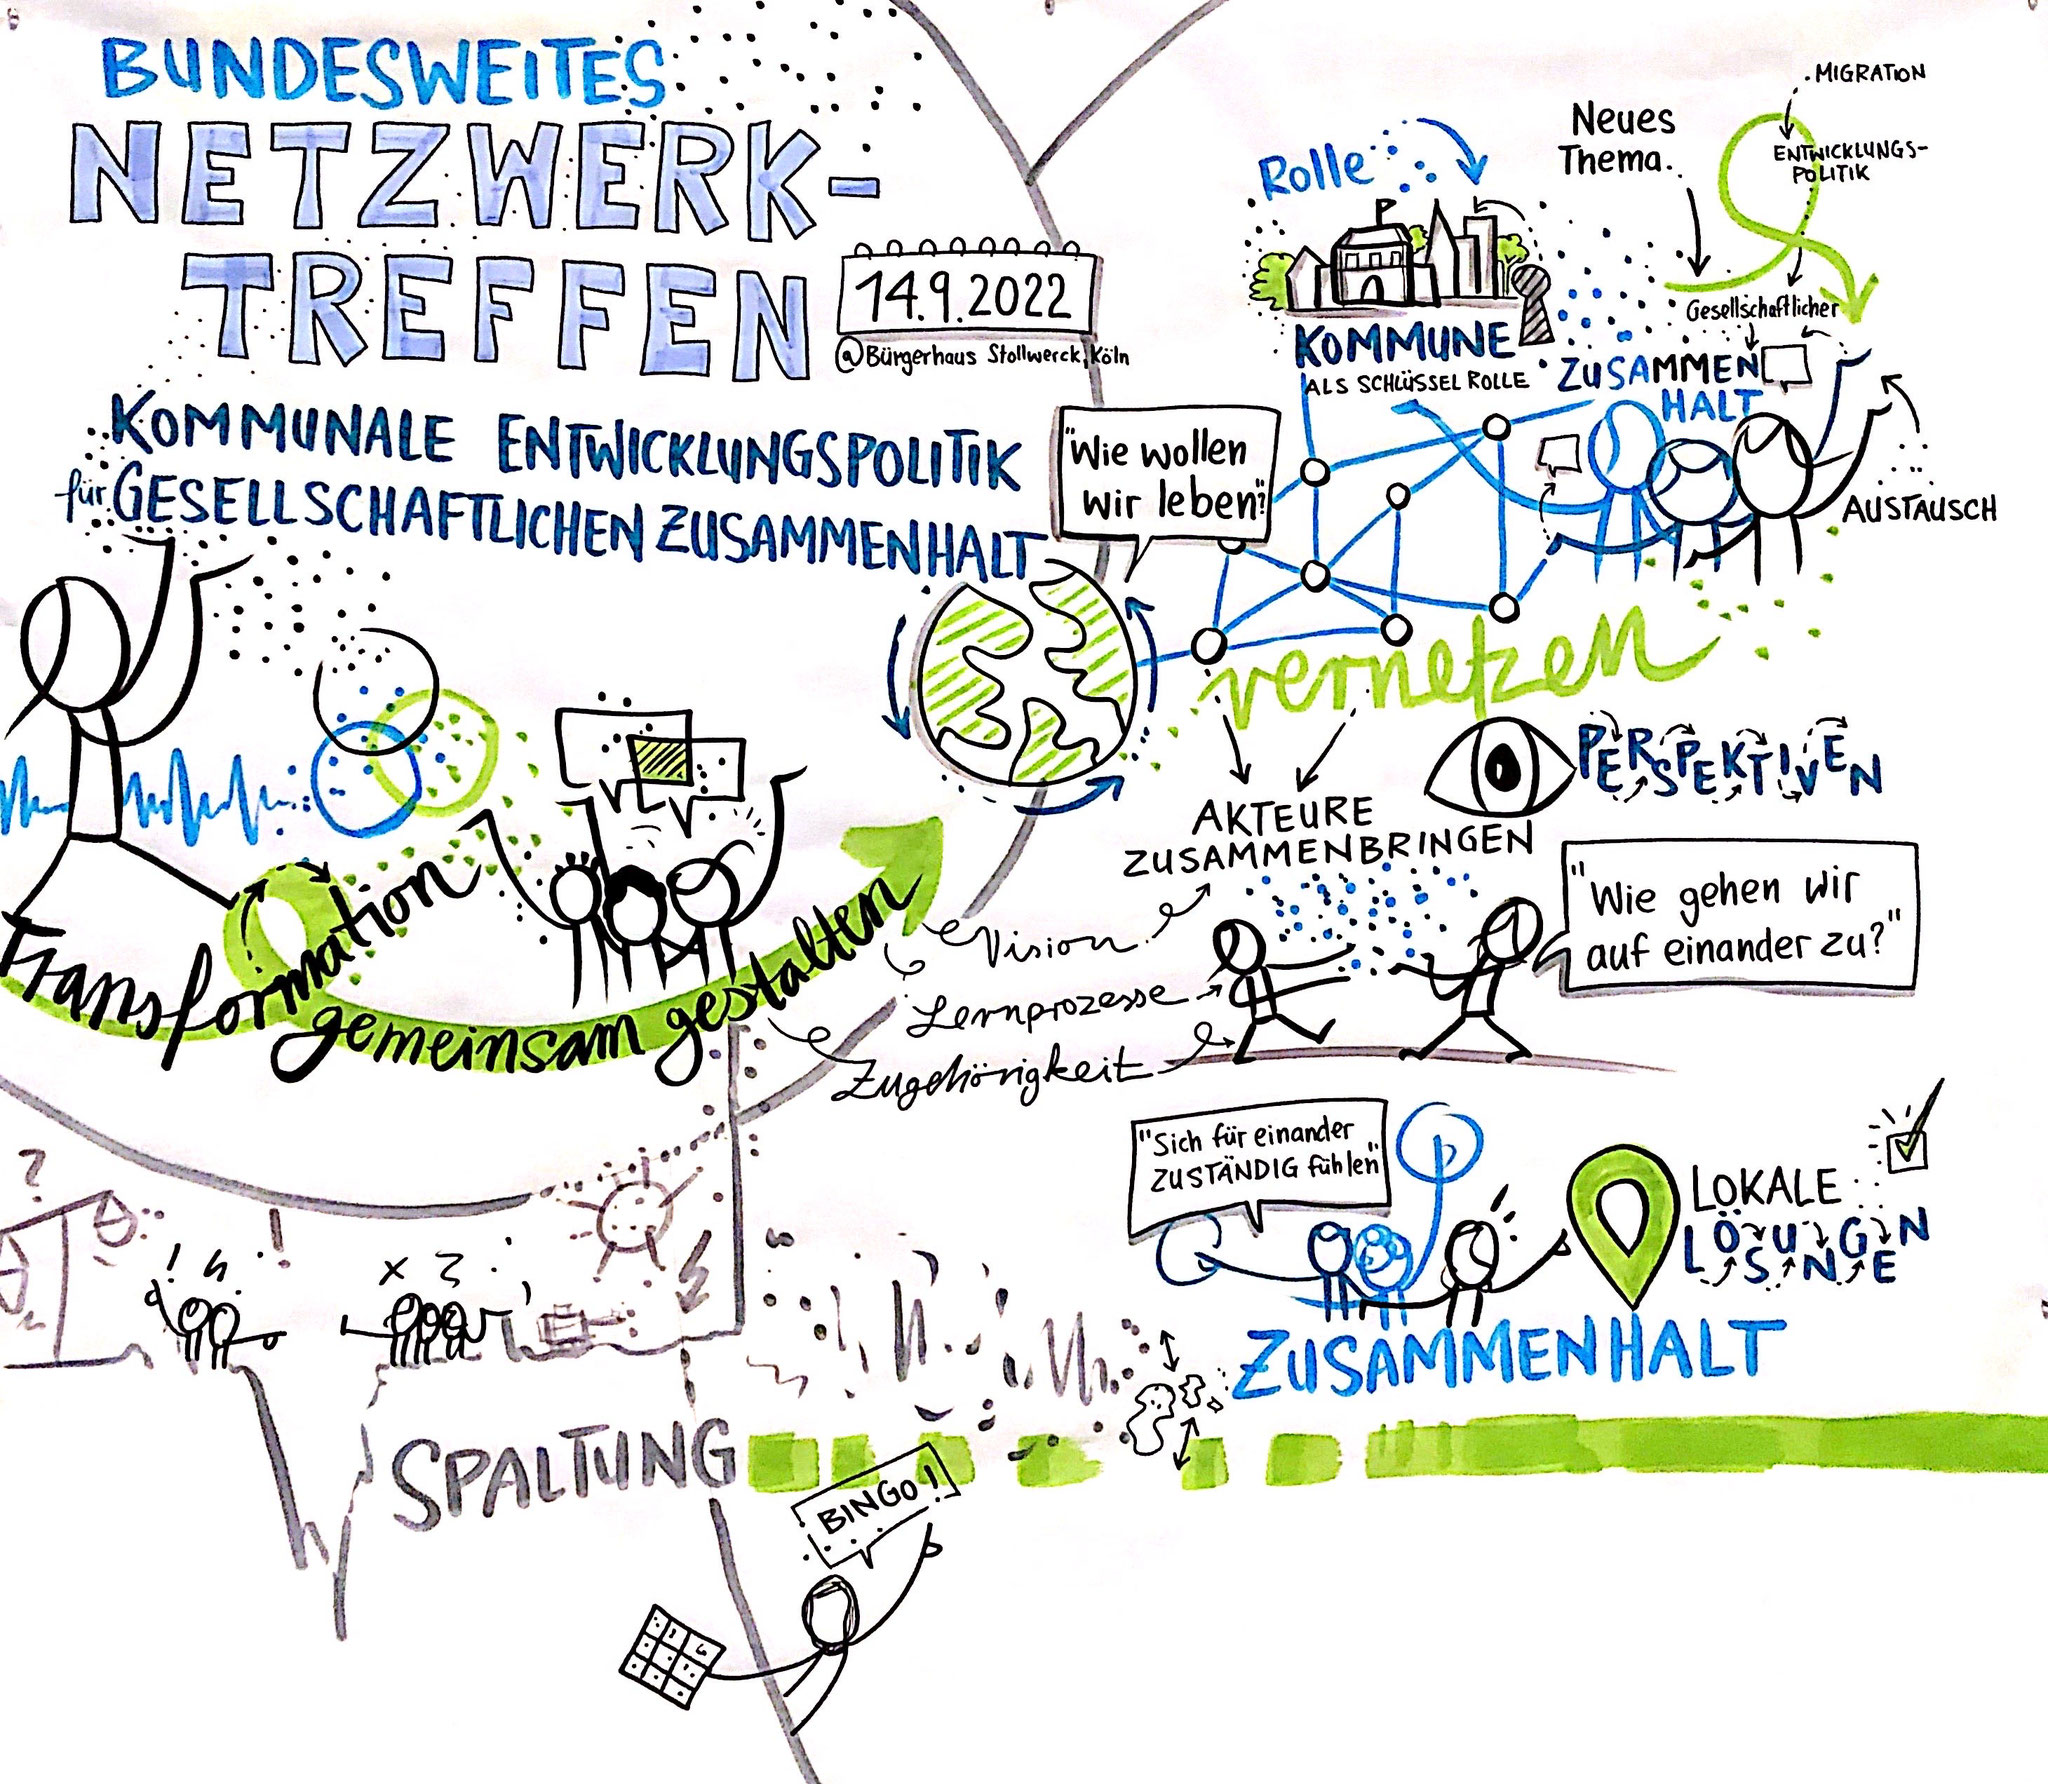 BUNDESWEITES
NETZWERK-
TREFFEN
14.9.2022
@Bürgerhaus Stollwerck, Köln
KOMMUNALE ENTWICKLUNGSPOLITIK
für GESELLSCHAFTLICHEN ZUSAMMENHALT
"Wie wollen
wir leben?"
Rolle
KOMMUNE
ALS SCHLÜSSEL ROLLE
Neues
Thema.
MIGRATION
ENTWICKLUNGS-
POLITIK
Gesellschaftlicher
ZUSAMMEN
HALT
AUSTAUSCH
vernetzen
PERSPEKTIVEN
AKTEURE
ZUSAMMENBRINGEN
"Wie gehen wir
auf einander zu?"
Transformation
gemeinsam gestalten
Vision
Lernprozesse
Zugehörigkeit
"Sich für einander
ZUSTÄNDIG fühlen"
LOKALE
LÖSUNGEN
ZUSAMMENHALT
? ! !
x
SPALTUNG
BINGO!